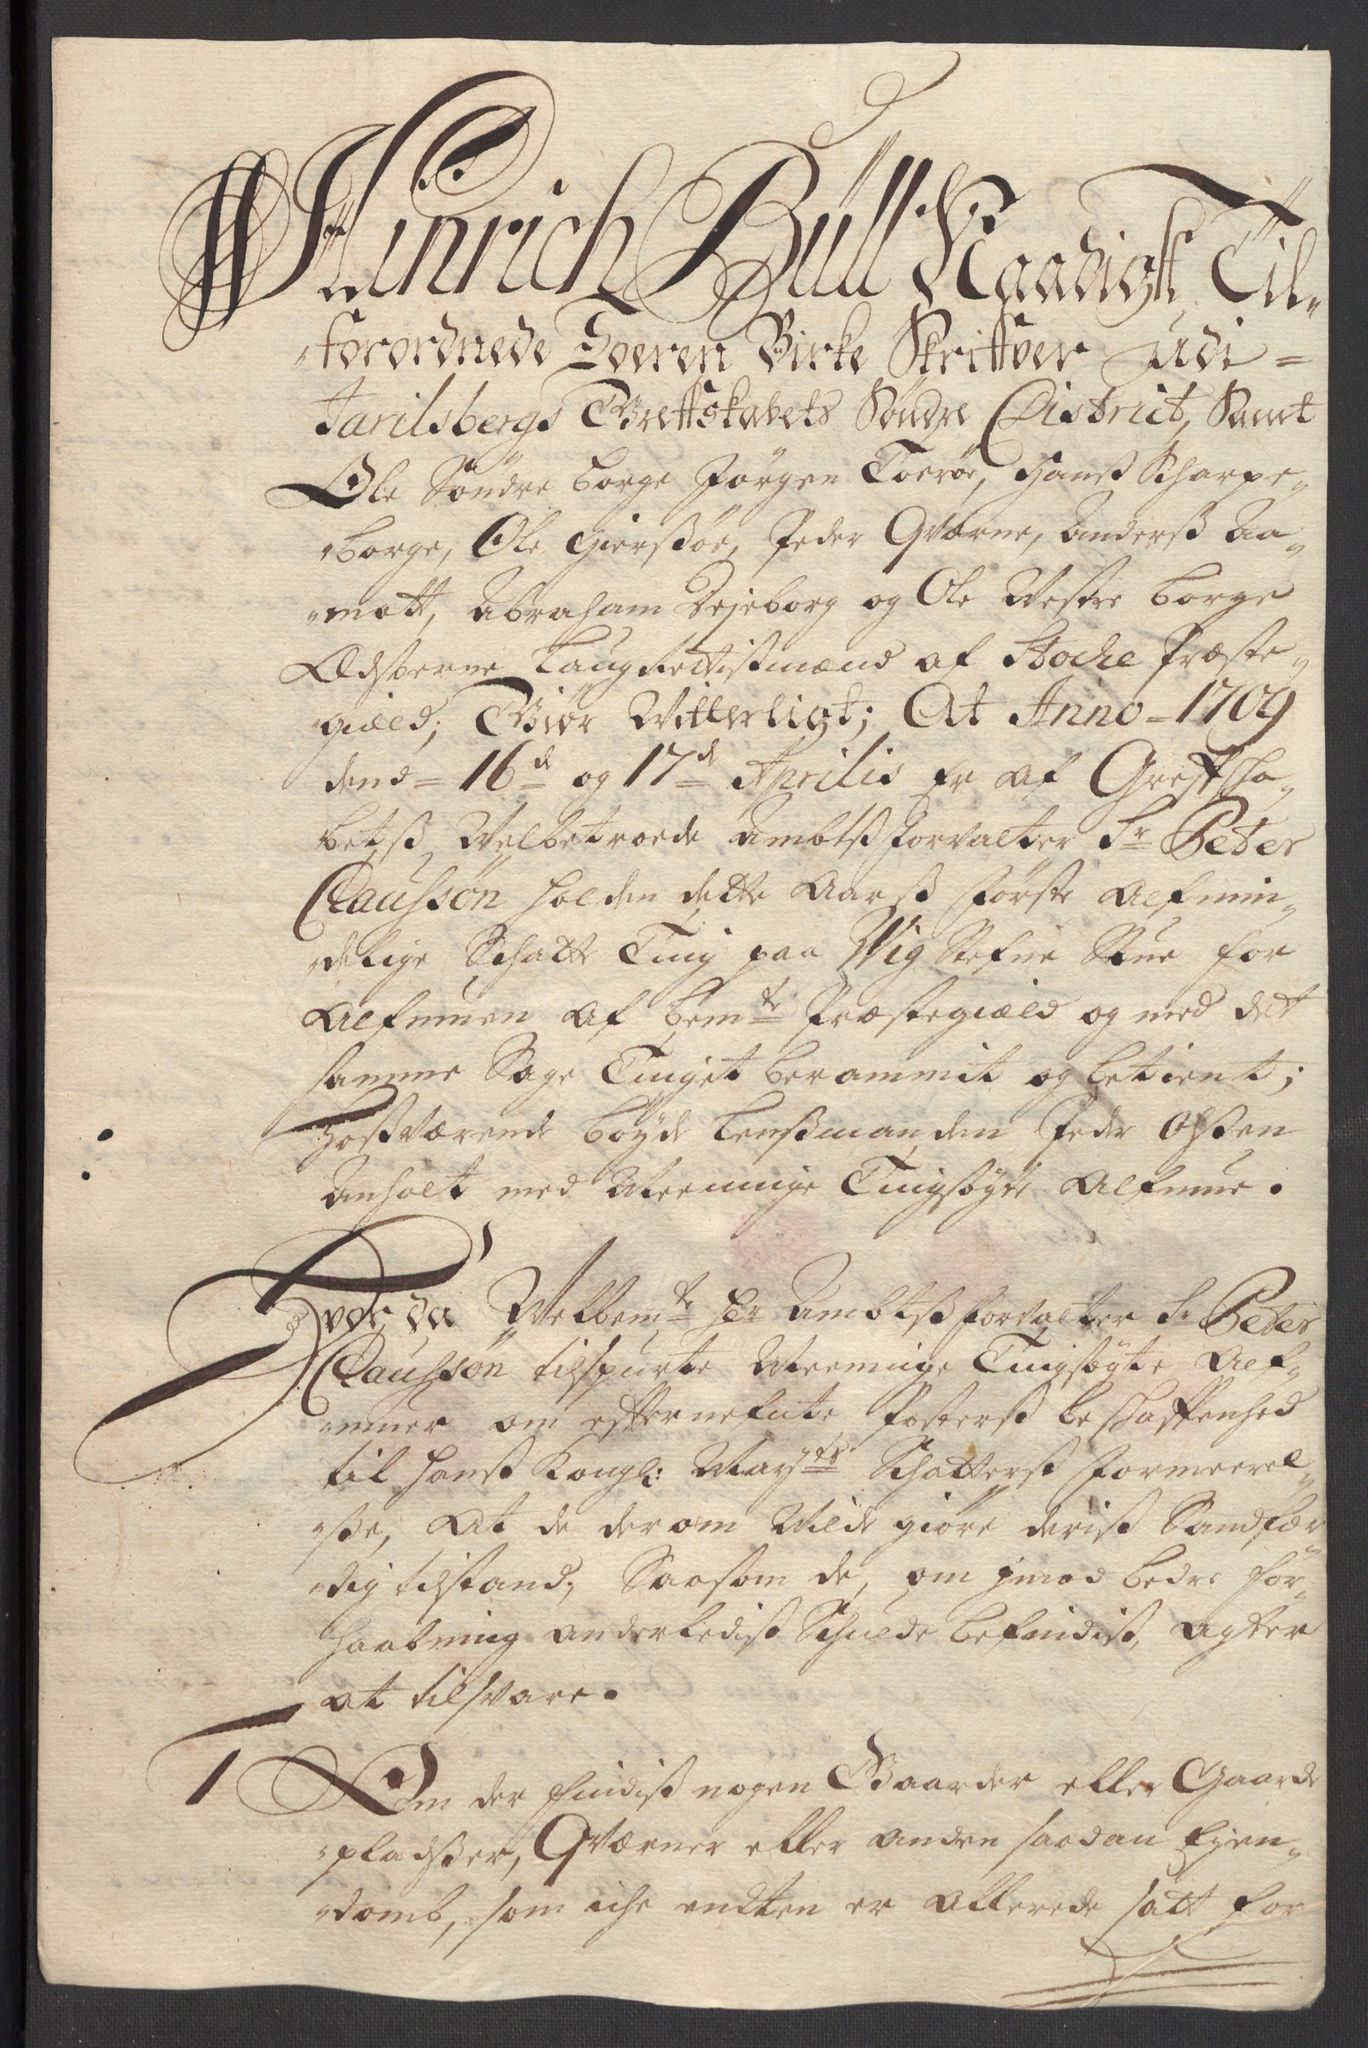 Hinrich Bull Naadigst Til„
„forordnede Soeren Birke Skriffver Udi =
Jarilsbergs Greffskabets Søndre District, Samt
Ole Søndre Borge Jørgen Toerøe, Hanß Scharpe„
„borge, Ole Gierßøe, Peder Qværne, Anderß Aa„
„mott, Abraham Vejeborg og Ole Westre Borge
Edsvorne Laugrettißmænd af Stocke Præste„
„gield; Giør Witterligt; At Anno = 1709
dend = 16de og 17de Aprilis er af Greffscha„
betß Welbetroede Ambtß forvalter Sr Peter
Claussøn holden dette Aarß første Almin„
„delige Schatte Ting paa Wig Stefne Stue for
Almuen af bemte Præstegield og med det
samme Sage Tinget berammit og betient;
Hoßværende Bøyde Lenßmanden Peder Olßen
Anholt med Meenige Tingsøgte Almue.
Hvor da Welbemte Hr Ambtß forvalter Sr Peter
Claussøn tilspurte Meenige Tingsøgte Al„
„muer om effternefnte Posterß beschaffenhed
til Hanß Kongl: Mayts Schatterß formeerel„
„ße, At de derom Wilde giøre deriß Sandfær
„dig tilstand, Saasom de, om imod bedre for„
haabning anderlediß Schulde befindiß, agter
at tilsvare.
1 Om der findiß nogen Gaarder eller Gaarde
„pladßer, Qværner eller anden saadan Ejen„
„domb, som iche endten er allerede satt for